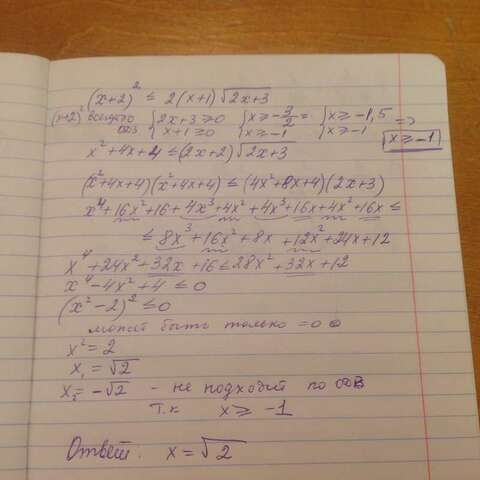 (x+2)² ≤ 2(x+1)√2x+3
(x+2)² всегда ≥0 { 2x+3 ≥ 0 { x ≥ -3/2 = { x ≥ -1,5 =>
{ x+1 ≥ 0 { x ≥ -1 { x ≥ -1 x ≥ -1
x²+4x+4 ≤ (2x+2)√2x+3
(x²+4x+4)(x²+4x+4) ≤ (4x²+8x+4)(2x+3)
x⁴+16x²+16+4x³+4x²+4x³+16x+4x²+16x ≤
≤ 8x³+16x²+8x+12x²+24x+12
x⁴+24x²+32x+16 ≤ 28x²+32x+12
x⁴-4x²+4 ≤ 0
(x²-2)² ≤ 0
может быть только = 0
x² = 2
x₁ = √2
x₂ = -√2 - не подходит по ОДЗ
т.к x ≥ -1
Ответ. x = √2